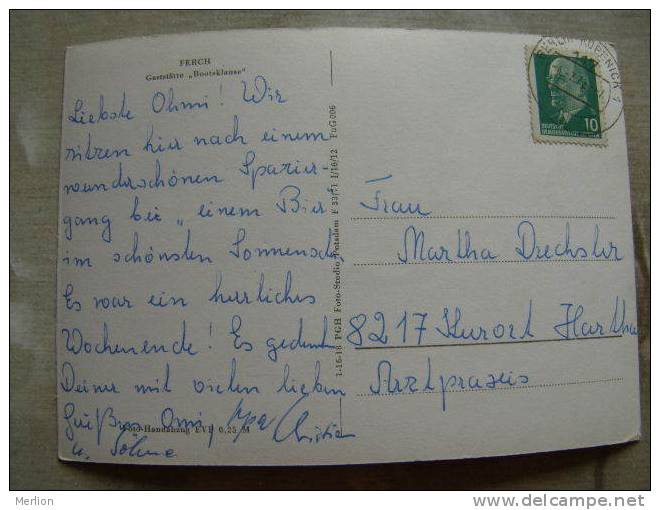 FERCH
Gaststätte „Bootsklause"
Liebste Ohmi! Wir
sitzen hier nach einem
wunderschönen Spazier-
gang bei „einem Bier"
im schönsten Sonnensch.
Es war ein herrliches
Wochenende! Es gedenkt
Deiner mit vielen lieben
Grüßen Omi, Opa Christian
u. Söhne
Foto-Handabzug EVP 0,25 M
1-16-18 PGH Foto-Studio Potsdam F 33/71 I/16/12 FuG 006
BERLIN-KÖPENICK 1
10
DEUTSCHE
DEMOKRATISCHE REPUBLIK
Frau
Martha Drechsler
8217 Kurort Hartha
Arztpraxis
Merlion
www.delcampe.net